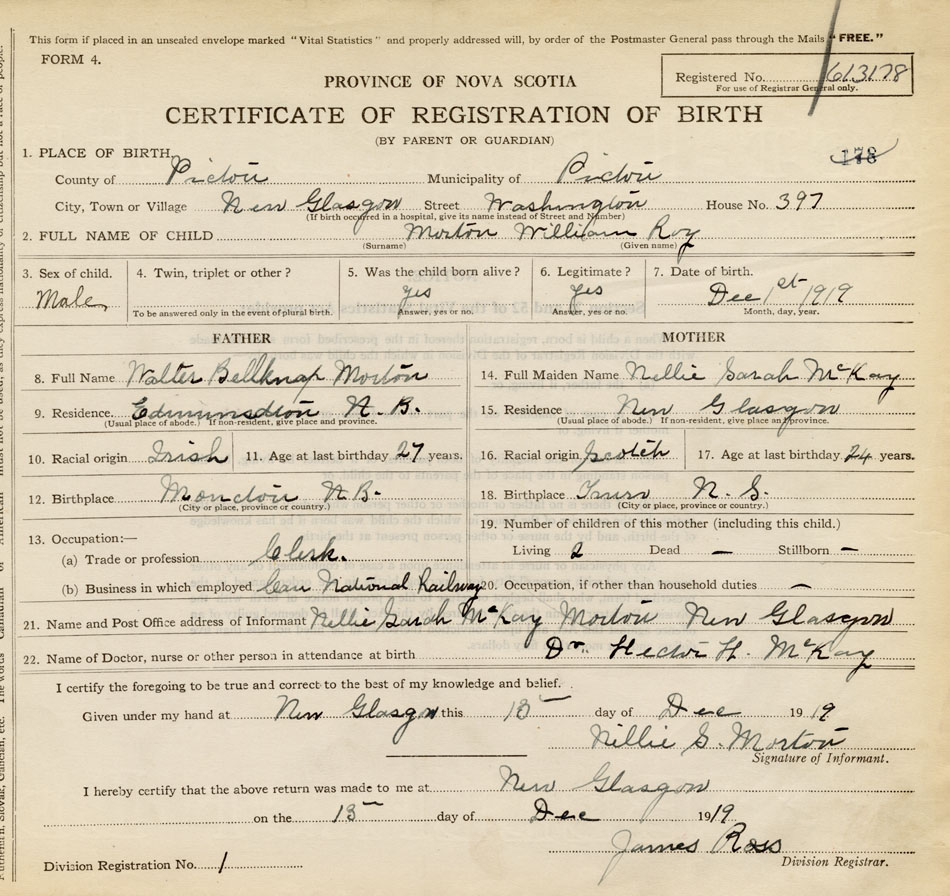 This form if placed in an unsealed envelope marked "Vital Statistics" and properly addressed will, by order of the Postmaster General pass through the Mails "FREE."
FORM 4.
Registered No. 613178
For use of Registrar General only.
PROVINCE OF NOVA SCOTIA
CERTIFICATE OF REGISTRATION OF BIRTH
(BY PARENT OR GUARDIAN)
178
1. PLACE OF BIRTH
County of Pictou Municipality of Pictou
City, Town or Village New Glasgow Street Washington House No. 397
(If birth occurred in a hospital, give its name instead of Street and Number)
2. FULL NAME OF CHILD Morton William Roy
(Surname) (Given name)
3. Sex of child. 4. Twin, triplet or other? 5. Was the child born alive? 6. Legitimate? 7. Date of birth.
Male yes yes Dec 1st 1919
To be answered only in the event of plural birth. Answer, yes or no. Answer, yes or no. Month, day, year.
FATHER MOTHER
8. Full Name Walter Bellknap Morton 14. Full Maiden Name Nellie Sarah McKay
9. Residence. Edmunsdton N.B. 15. Residence New Glasgow
(Usual place of abode.) If non-resident, give place and province. (Usual place of abode.) If non-resident, give place and province.
10. Racial origin Irish 11. Age at last birthday 27 years. 16. Racial origin Scotch 17. Age at last birthday 24 years.
12. Birthplace Moncton N.B. 18. Birthplace Truro N.S.
(City or place, province or country.) (City or place, province or country.)
13. Occupation:— 19. Number of children of this mother (including this child.)
(a) Trade or profession Clerk. Living 2 Dead — Stillborn —
(b) Business in which employed Can National Railway 20. Occupation, if other than household duties —
21. Name and Post Office address of Informant Nellie Sarah McKay Morton New Glasgow
22. Name of Doctor, nurse or other person in attendance at birth Dr. Hector H. McKay
I certify the foregoing to be true and correct to the best of my knowledge and belief.
Given under my hand at New Glasgow this 13 day of Dec 1919
Nellie S. Morton
Signature of Informant.
I hereby certify that the above return was made to me at New Glasgow
on the 13 day of Dec 1919
James Ross
Division Registration No. 1 Division Registrar.